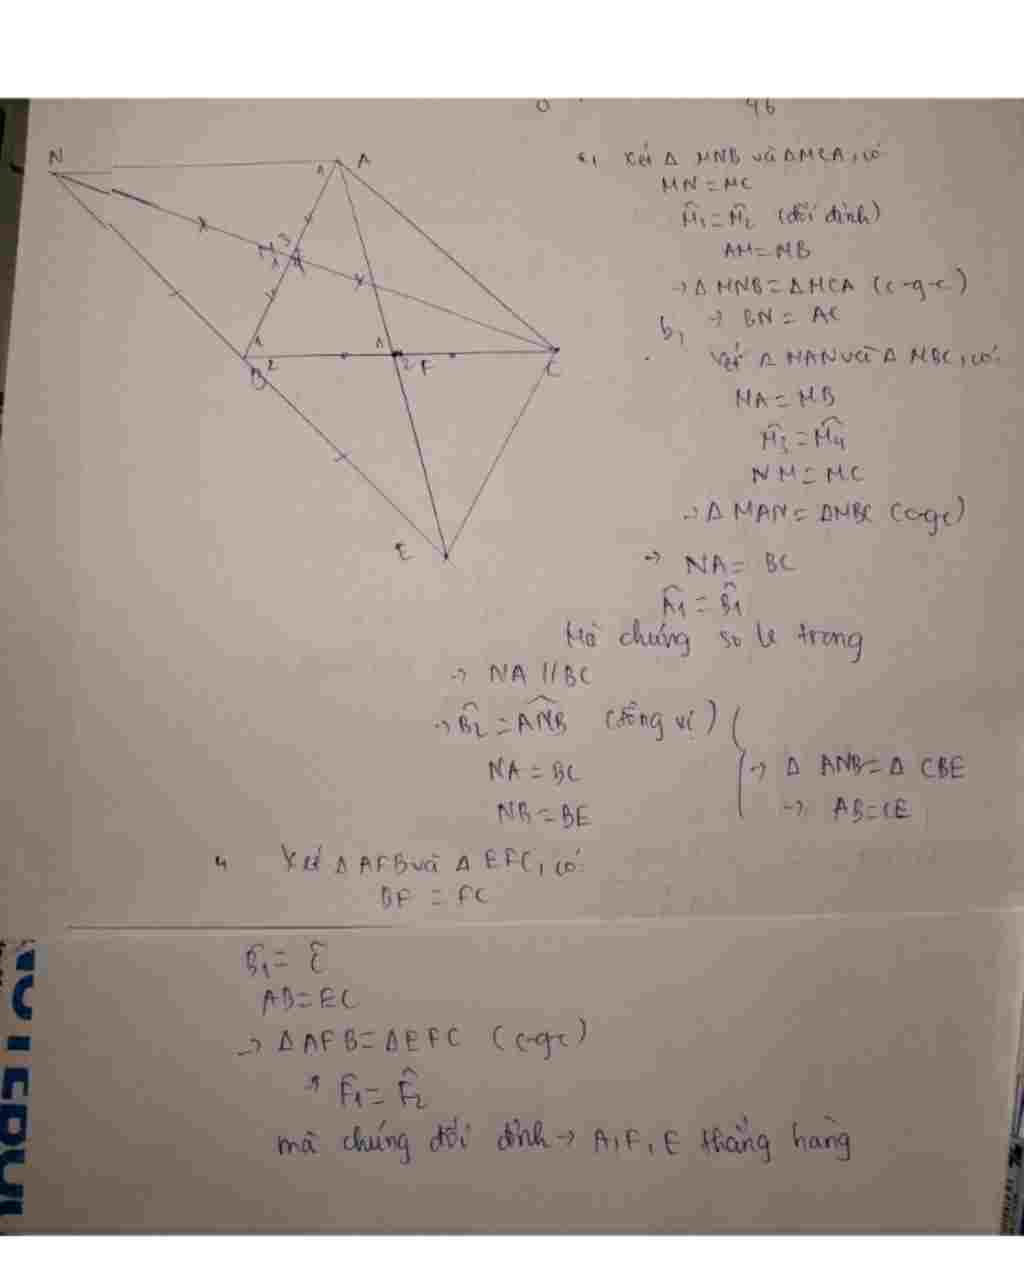 46
N
A
M
B
F
C
E
a, Xét Δ MNB và Δ MCA, có
MN = MC
M̂1 = M̂2 (đối đỉnh)
AM = MB
→ Δ MNB = Δ MCA (c-g-c)
→ BN = AC
b,
Xét Δ MAN và Δ MBC, có:
MA = MB
M̂3 = M̂4
NM = MC
→ Δ MAN = Δ MBC (cgc)
→ NA = BC
Â1 = B̂1
Mà chúng so le trong
→ NA // BC
→ B̂2 = ANB (đồng vị)
NA = BC
NB = BE
→ Δ ANB = Δ CBE
→ AB = CE
Xét Δ AFB và Δ EFC, có:
BF = FC
B̂1 = Ĉ
AB = EC
→ Δ AFB = Δ EFC (cgc)
→ F̂1 = F̂2
mà chúng đối đỉnh → A, F, E thẳng hàng